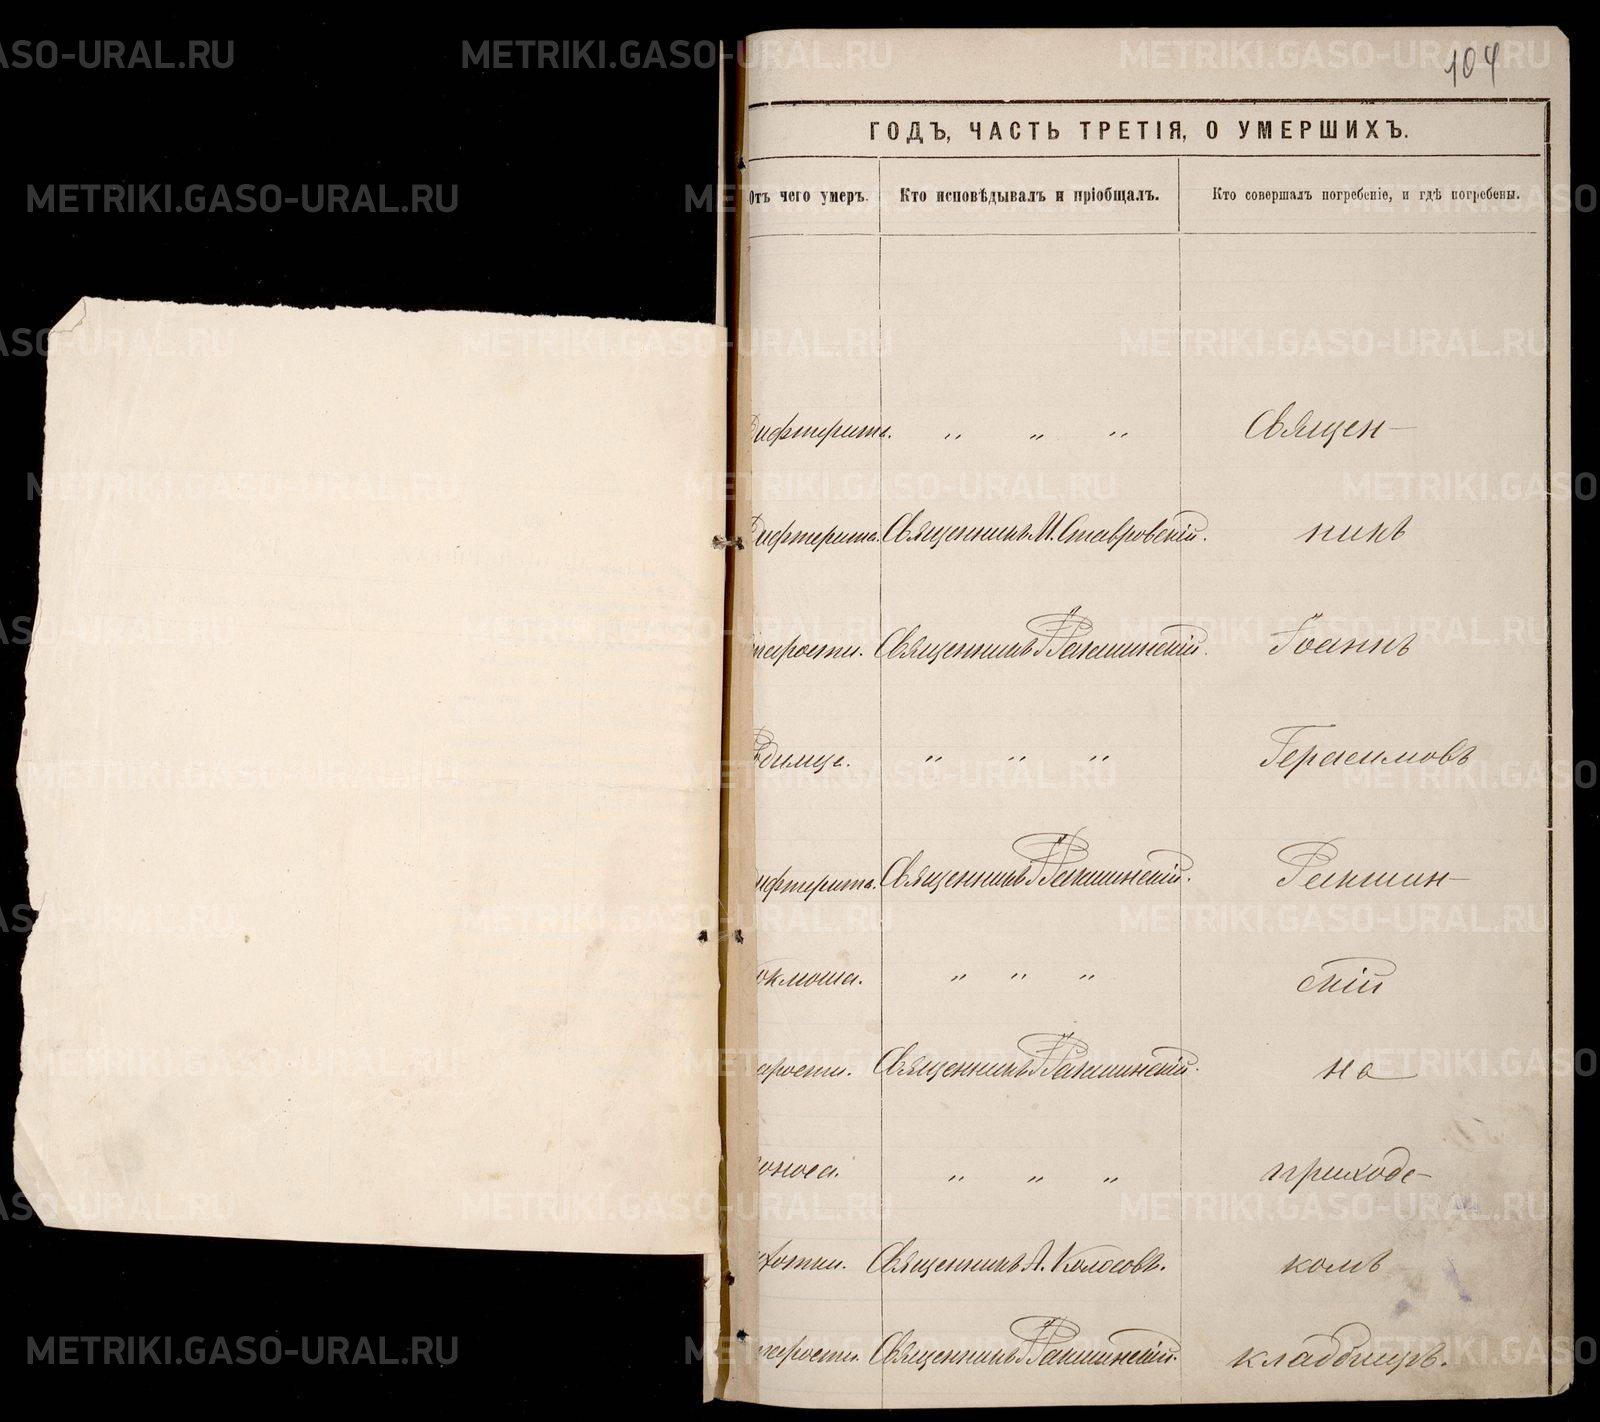 104
ГОДЪ, ЧАСТЬ ТРЕТІЯ, О УМЕРШИХЪ.
Отъ чего умеръ. Кто исповѣдывалъ и пріобщалъ. Кто совершалъ погребеніе, и гдѣ погребены.
Дифтерита. „ „ „ Священ-
Дифтерита. Священникъ И. Ставровскій. никъ
тарости. Священникъ І Ракшинскій. Іоаннъ
Родимца. „ „ „ Герасимовъ
ифтерита. Священникъ І Ракшинскій. Ракшин-
оклюша. „ „ „ скій
арости. Священникъ І Ракшинскій. на
оноса. „ „ „ приходс-
хотки. Священникъ А. Колосовъ. комъ
тарости. Священникъ І Ракшинскій. кладбищѣ.
METRIKI.GASO-URAL.RU